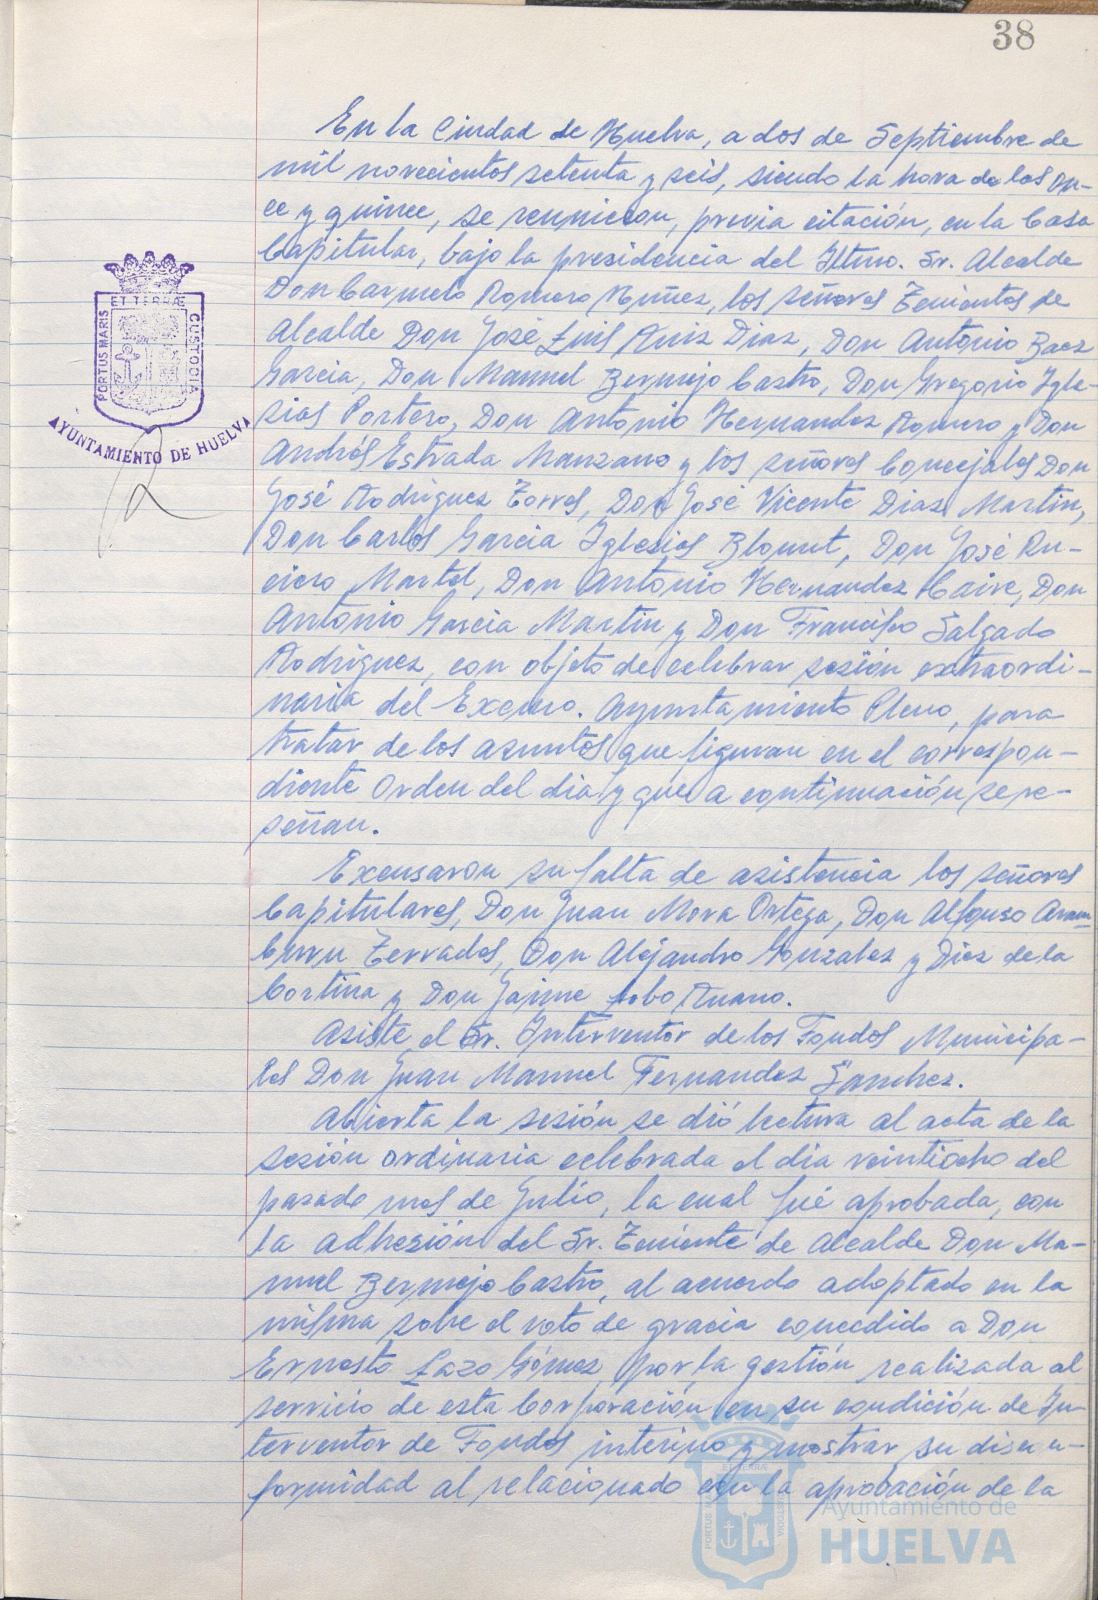 38
En la Ciudad de Huelva, a dos de Septiembre de
mil novecientos setenta y seis, siendo la hora de las on-
ce y quince, se reunieron, previa citación, en la Casa
Capitular, bajo la presidencia del Iltmo. Sr. Alcalde
Don Carmelo Romero Nuñez, los señores Tenientes de
Alcalde Don José Luis Ruiz Diaz, Don Antonio Baez
Garcia, Don Manuel Bermejo Castro, Don Gregorio Igle-
sias Portero, Don Antonio Hernandez Romero y Don
Andrés Estrada Manzano y los señores Concejales Don
José Rodriguez Torres, Don José Vicente Diaz Martin,
Don Carlos Garcia Iglesias Blount, Don José Ru-
ciero Martel, Don Antonio Hernandez Caire, Don
Antonio Garcia Martin y Don Francisco Salgado
Rodriguez, con objeto de celebrar sesión extraordi-
naria del Excmo. Ayuntamiento Pleno, para
tratar de los asuntos que figuran en el correspon-
diente Orden del dia y que a continuación se re-
señan.
Excusaron su falta de asistencia los señores
Capitulares, Don Juan Mora Ortega, Don Alfonso Aram-
burru Terrades, Don Alejandro Gonzalez y Diez de la
Cortina y Don Jaime Lobo Ruano.
Asiste el Sr. Interventor de los Fondos Municipa-
les Don Juan Manuel Fernandez Sanchez.
Abierta la sesión se dió lectura al acta de la
sesión ordinaria celebrada el dia veintiocho del
pasado mes de Julio, la cual fué aprobada, con
la adhesión del Sr. Teniente de Alcalde Don Ma-
nuel Bermejo Castro, al acuerdo adoptado en la
misma sobre el voto de gracia concedido a Don
Ernesto Lazo Gómez por la gestión realizada al
servicio de esta Corporación en su condición de In-
terventor de Fondos interino y mostrar su discon-
formidad al relacionado con la aprobación de la
PORTUS MARIS
ET TERRÆ
CUSTODIA
AYUNTAMIENTO DE HUELVA
PORTUS MARIS
ET TERRÆ
CUSTODIA
Ayuntamiento de
HUELVA